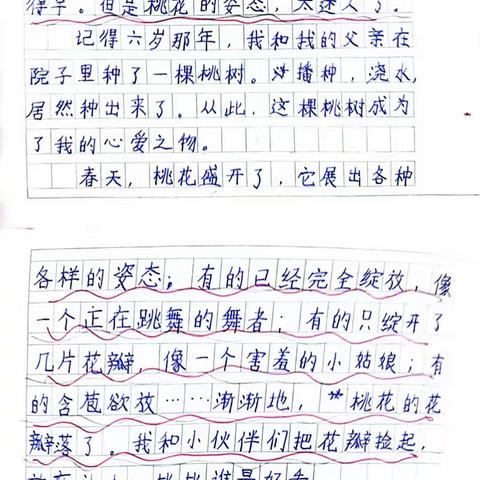 但是桃花的姿态,太迷人了。
记得六岁那年,我和我的父亲在
院子里种了一棵桃树。播种,浇水,
居然种出来了。从此,这棵桃树成为
了我的心爱之物。
春天,桃花盛开了,它展出各种
各样的姿态;有的已经完全绽放,像
一个正在跳舞的舞者;有的只绽开了
几片花瓣,像一个害羞的小姑娘;有
的含苞欲放……渐渐地,桃花的花
瓣落了。我和小伙伴们把花瓣捡起,